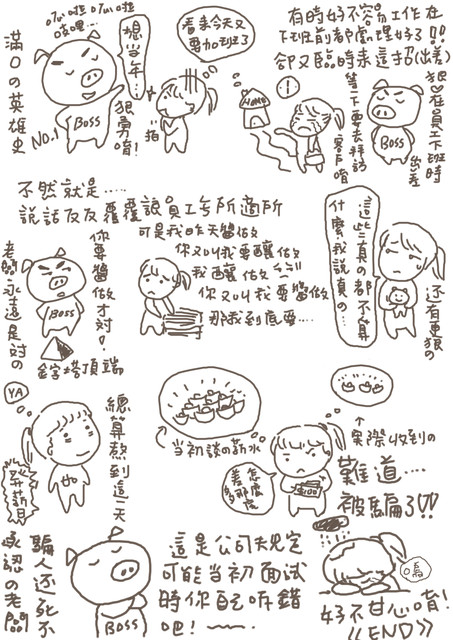 有時好不容易工作在
下班前都處理好了!!
卻又臨時來這招(出差)
狠♡在員工下班時
出差
等一下要去拜訪
客戶唷
BOSS
!
HOME
看來今天又
要加班了
想當年…
狠勇唷!
拍
BOSS
NO.1
滿口の英雄史
不然就是……
說話反反覆覆說員工無所適從
可是我昨天這樣做
你又叫我要那樣做
那我到底要…
你要這樣做才對!
BOSS
老闆永遠是對の
金字塔頂端
還有更狠の
這些真の都不算
什麼我說真の…
總算熬到這一天
YA
發薪日
當初談の薪水
↑實際收到の
怎麼差那麼多
難道……
被騙了!?
這是公司規定
可能當初面試
時你自己聽錯
吧!~~
BOSS
騙人還死不
承認の老闆
嗚
好不甘心唷!
《END》